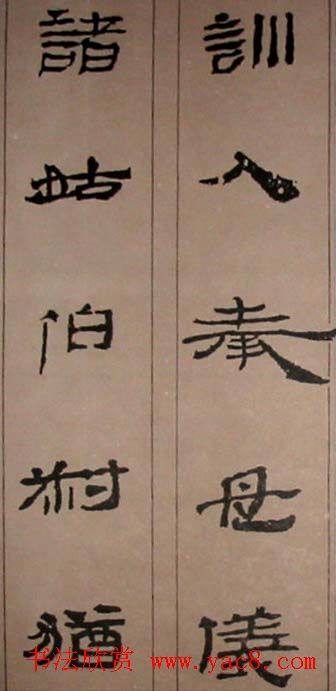 訓入奉母儀
諸姑伯叔猶
书法欣赏 www.yac8.com